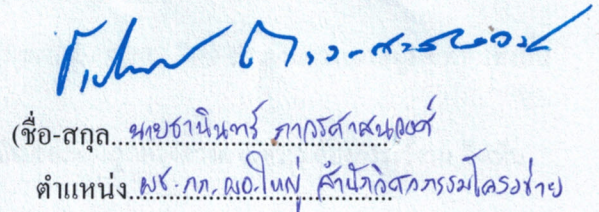 (ชื่อ-สกุล นายชานินทร์ ภาวรศาสนวงศ์
ตำแหน่ง ผช.กก.ผอ.ใหญ่ สำนักวิศวกรรมโครงข่าย